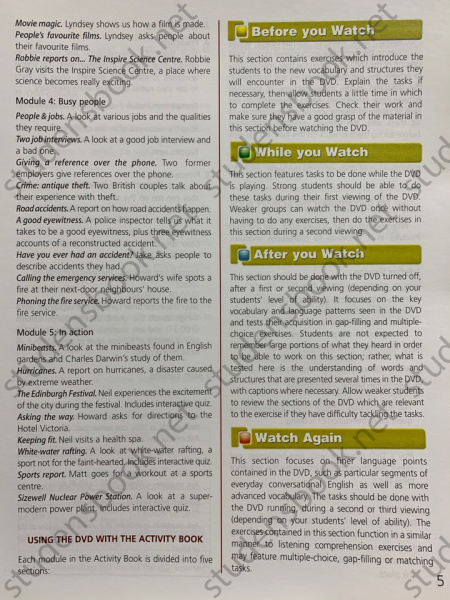 Movie magic. Lyndsey shows us how a film is made.
People's favourite films. Lyndsey asks people about
their favourite films.
Robbie reports on... The Inspire Science Centre. Robbie
Gray visits the Inspire Science Centre, a place where
science becomes really exciting.
Module 4: Busy people
People & jobs. A look at various jobs and the qualities
they require.
Two job interviews. A look at a good job interview and
a bad one.
Giving a reference over the phone. Two former
employers give references over the phone.
Crime: antique theft. Two British couples talk about
their experience with theft.
Road accidents. A report on how road accidents happen.
A good eyewitness. A police inspector tells us what it
takes to be a good eyewitness, plus three eyewitness
accounts of a reconstructed accident.
Have you ever had an accident? Jake asks people to
describe accidents they had.
Calling the emergency services. Howard's wife spots a
fire at their next-door neighbours' house.
Phoning the fire service. Howard reports the fire to the
fire service.
Module 5: In action
Minibeasts. A look at the minibeasts found in English
gardens and Charles Darwin's study of them.
Hurricanes. A report on hurricanes, a disaster caused
by extreme weather.
The Edinburgh Festival. Neil experiences the excitement
of the city during the festival. Includes interactive quiz.
Asking the way. Howard asks for directions to the
Hotel Victoria.
Keeping fit. Neil visits a health spa.
White-water rafting. A look at white-water rafting, a
sport not for the faint-hearted. Includes interactive quiz.
Sports report. Matt goes for a workout at a sports
centre.
Sizewell Nuclear Power Station. A look at a super-
modern power plant. Includes interactive quiz.
USING THE DVD WITH THE ACTIVITY BOOK
Each module in the Activity Book is divided into five
sections:
Before you Watch
This section contains exercises which introduce the
students to the new vocabulary and structures they
will encounter in the DVD. Explain the tasks if
necessary, then allow students a little time in which
to complete the exercises. Check their work and
make sure they have a good grasp of the material in
this section before watching the DVD.
While you Watch
This section features tasks to be done while the DVD
is playing. Strong students should be able to do
these tasks during their first viewing of the DVD.
Weaker groups can watch the DVD once without
having to do any exercises, then do the exercises in
this section during a second viewing.
After you Watch
This section should be done with the DVD turned off,
after a first or second viewing (depending on your
students' level of ability). It focuses on the key
vocabulary and language patterns seen in the DVD
and tests their acquisition in gap-filling and multiple-
choice exercises. Students are not expected to
remember large portions of what they heard in order
to be able to work on this section; rather, what is
tested here is the understanding of words and
structures that are presented several times in the DVD,
with captions where necessary. Allow weaker students
to review the sections of the DVD which are relevant
to the exercise if they have difficulty tackling the tasks.
Watch Again
This section focuses on finer language points
contained in the DVD, such as particular segments of
everyday conversational English as well as more
advanced vocabulary. The tasks should be done with
the DVD running, during a second or third viewing
(depending on your students' level of ability). The
exercises contained in this section function in a similar
manner to listening comprehension exercises and
may feature multiple-choice, gap-filling or matching
tasks.
5
studentsbook.net